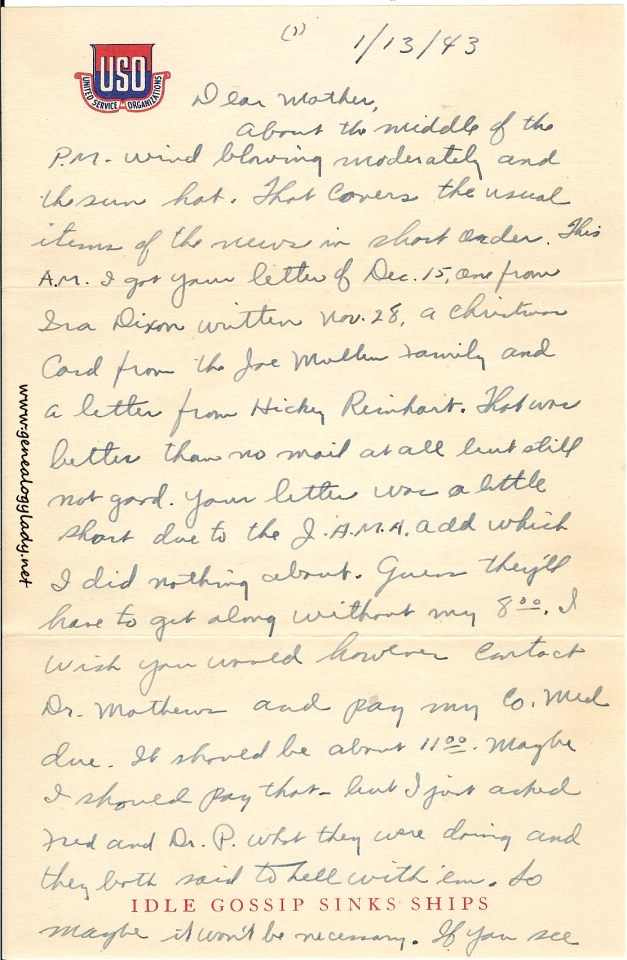 (1)
1/13/43
USO
UNITED SERVICE ORGANIZATIONS
Dear Mother,
About the middle of the
P.M. wind blowing moderately and
the sun hot. That covers the usual
items of the news in short order. This
A.M. I got your letter of Dec. 15, one from
Ira Dixon written Nov. 28, a Christmas
Card from the Joe Mullen Family and
a letter from Hickey Reinhart. That was
better than no mail at all but still
not good. Your letter was a little
short due to the J.A.M.A. add which
I did nothing about. Guess they'll
have to get along without my 8.00. I
wish you would however contact
Dr. Mathews and pay my Co. Med
due. It should be about 11.00. Maybe
I should pay that – but I just asked
Fred and Dr. P. what they were doing and
they both said to hell with 'em. So
IDLE GOSSIP SINKS SHIPS
maybe it won't be necessary. If you see
www.genealogylady.net